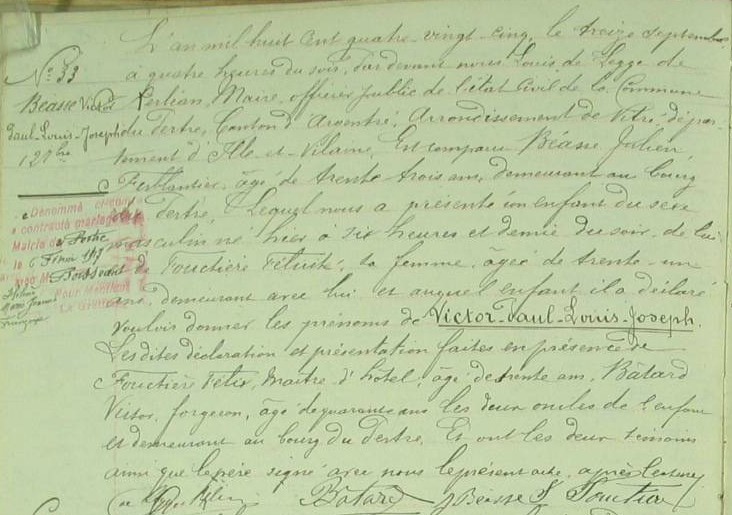 L'an mil huit cent quatre-vingt-cinq, le treize septembre
N° 33
à quatre heures du soir, Par devant nous Louis de Legge de
Béasse Victor
Kerléan, Maire, officier public de l'état civil de la Commune
Paul-Louis-Joseph
du Tertre, Canton d'Argentré, Arrondissement de Vitré, dépar-
12 7bre
tement d'Ille-et-Vilaine, Est comparu Béasse Julien,
Ferblantier, âgé de trente trois ans, demeurant au bourg
Dénommé ci-contre
a contracté mariage
du Tertre, Lequel nous a présenté un enfant du sexe
Mairie de
masculin né hier à six heures et demie du soir, de lui
le
avec M
de Fouctière Félicité, sa femme, âgée de trente-un
Pour Mention
ans demeurant avec lui et auquel enfant il a déclaré
Le Greffier
vouloir donner les prénoms de Victor-Paul-Louis-Joseph.
Les dites déclaration et présentation faites en présence de
Fouctière Félix, Maître d'hôtel, âgé de trente ans, Bâtard
Victor, forgeron, âgé de quarante ans les deux oncles de l'enfant
et demeurant au bourg du Tertre, Et ont les deux témoins
ainsi que le père signé avec nous le présent acte, après lecture
Batard J Béasse F Fouctière